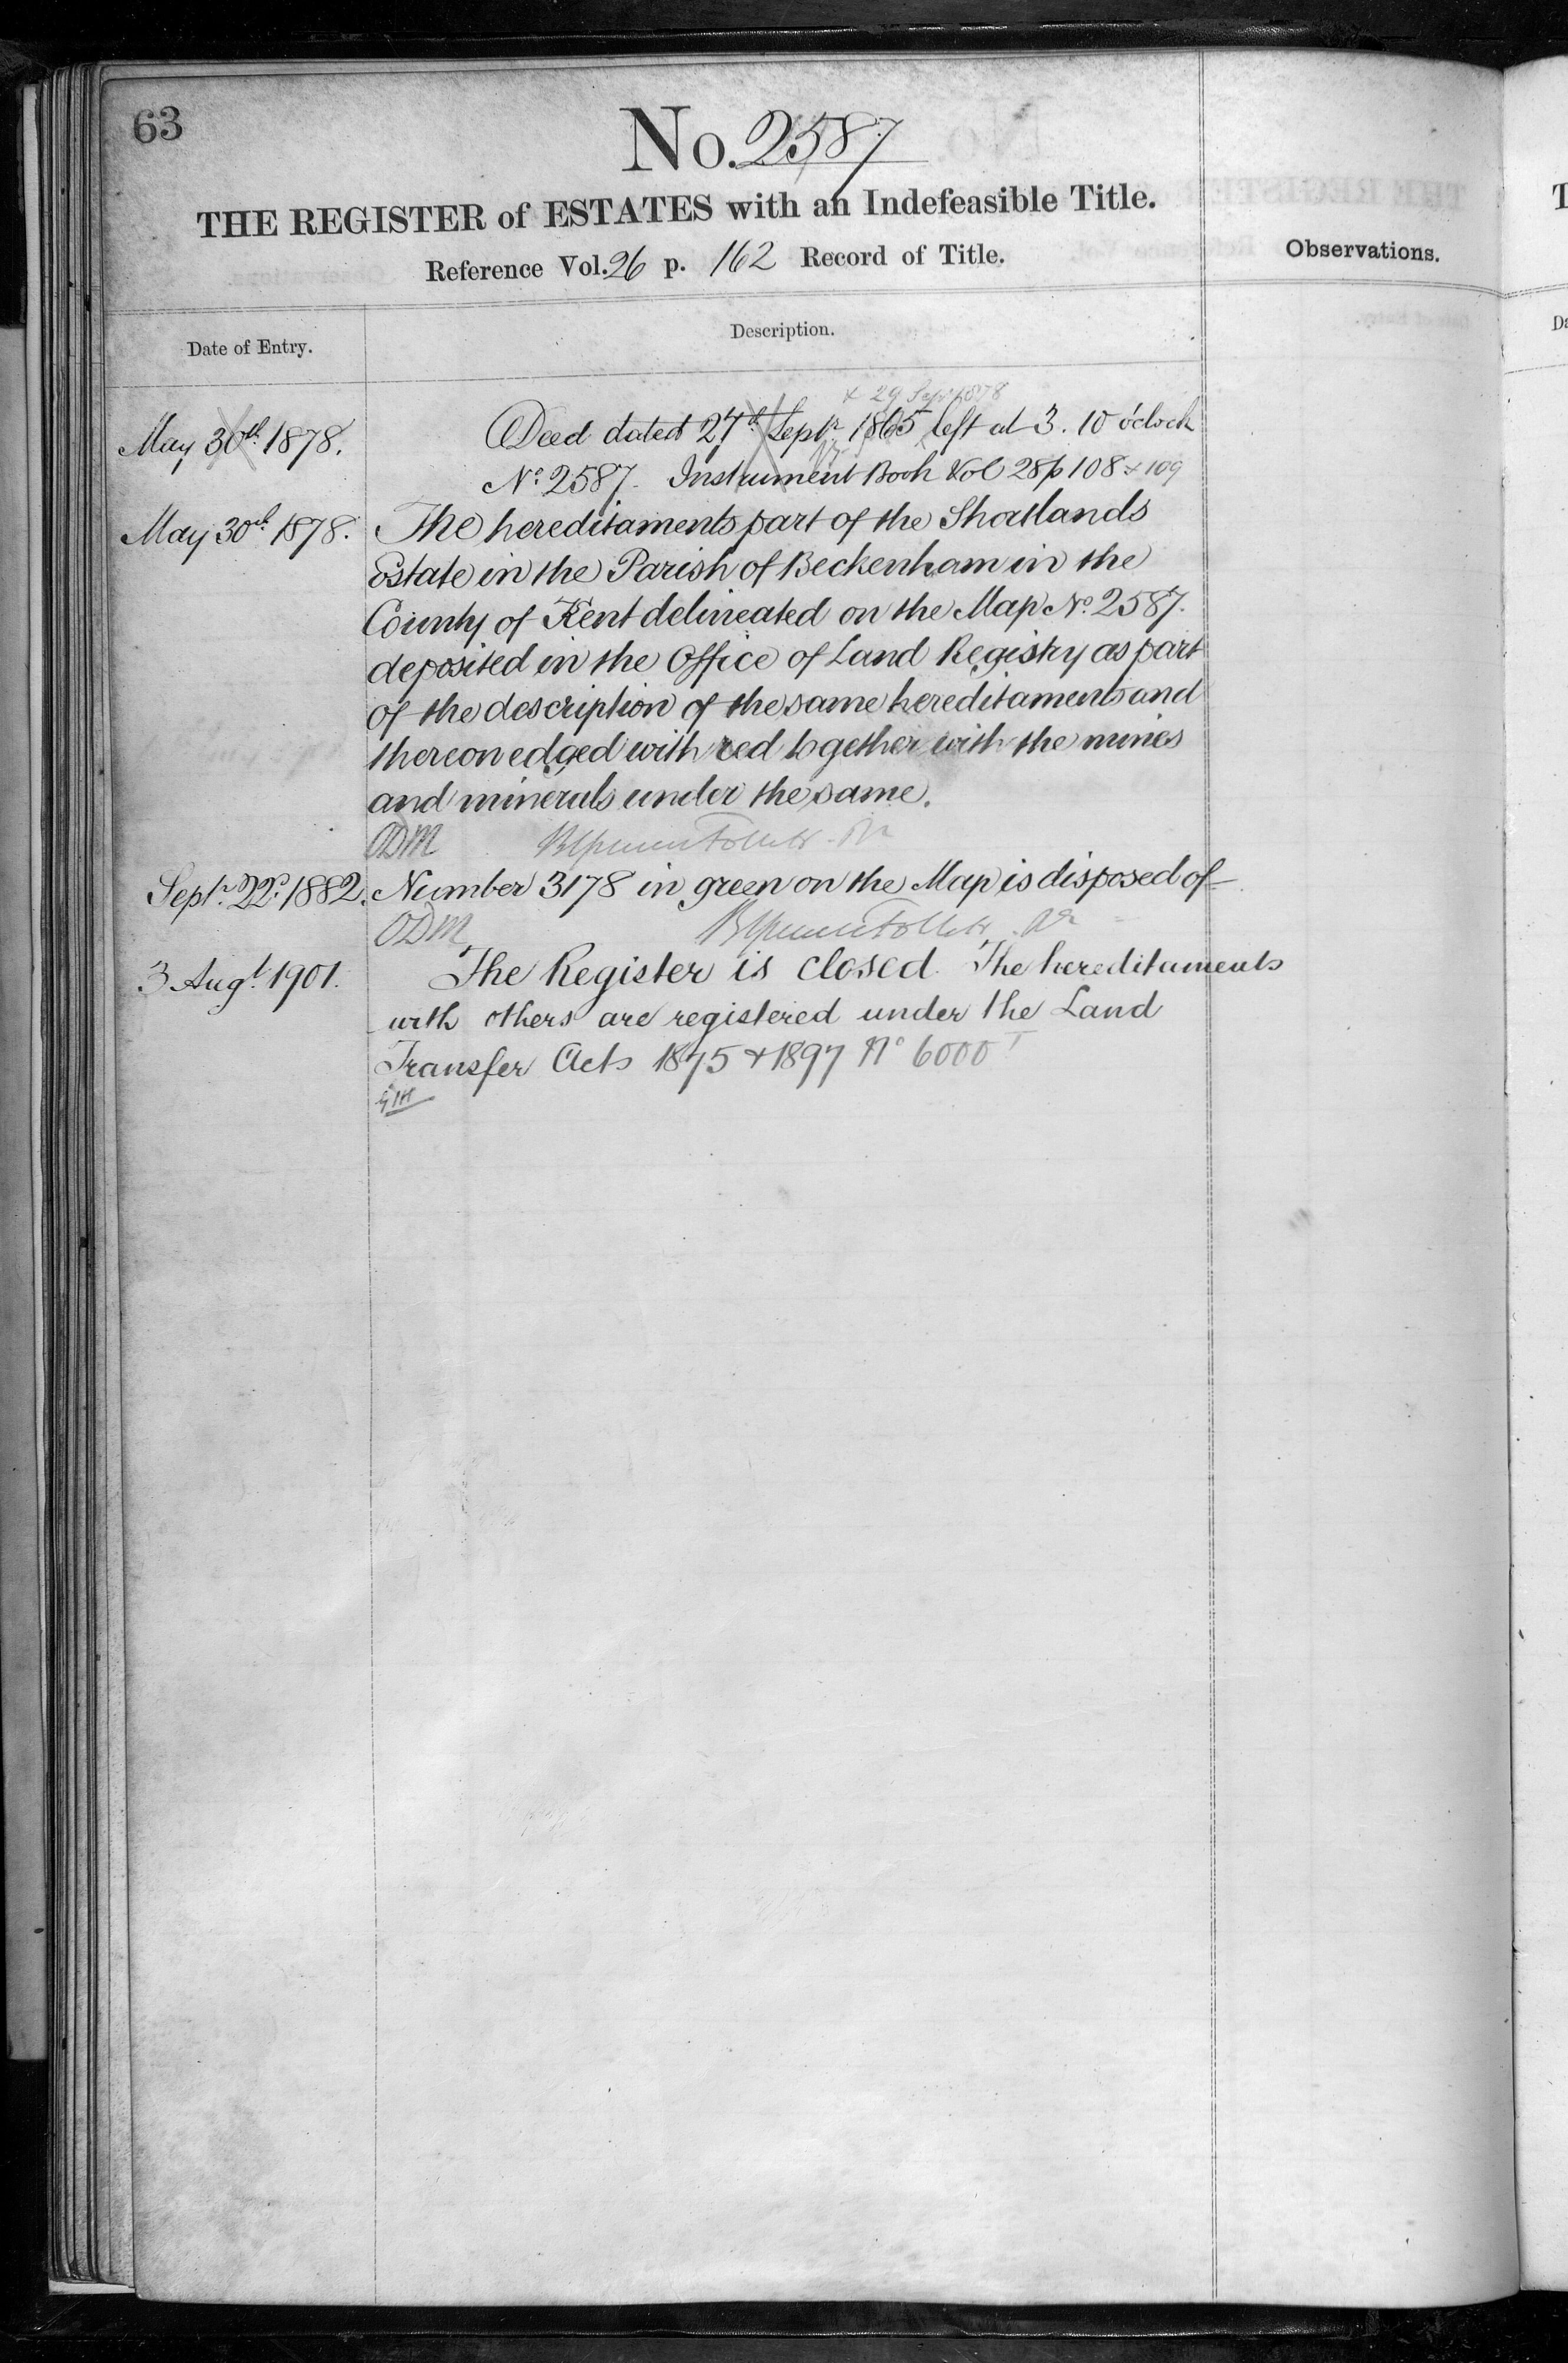 63
No. 2587
THE REGISTER of ESTATES with an Indefeasible Title.
Reference Vol. 26 p. 162 Record of Title.
Observations.
Date of Entry.
Description.
& 29 Sept 1878
May 30th 1878. Deed dated 27th Septr 1865 left at 3. 10 o'clock
No 2587. Instrument Book Vol 28 p 108 & 109
May 30th 1878. The hereditaments part of the Shortlands
Estate in the Parish of Beckenham in the
County of Kent delineated on the Map No 2587.
deposited in the Office of Land Registry as part
of the description of the same hereditaments and
thereon edged with red together with the mines
and minerals under the same.
ODM
Septr 22d 1882. Number 3178 in green on the Map is disposed of
ODM
3 Augt 1901. The Register is closed. The hereditaments
with others are registered under the Land
Transfer Acts 1875 & 1897 No 6000